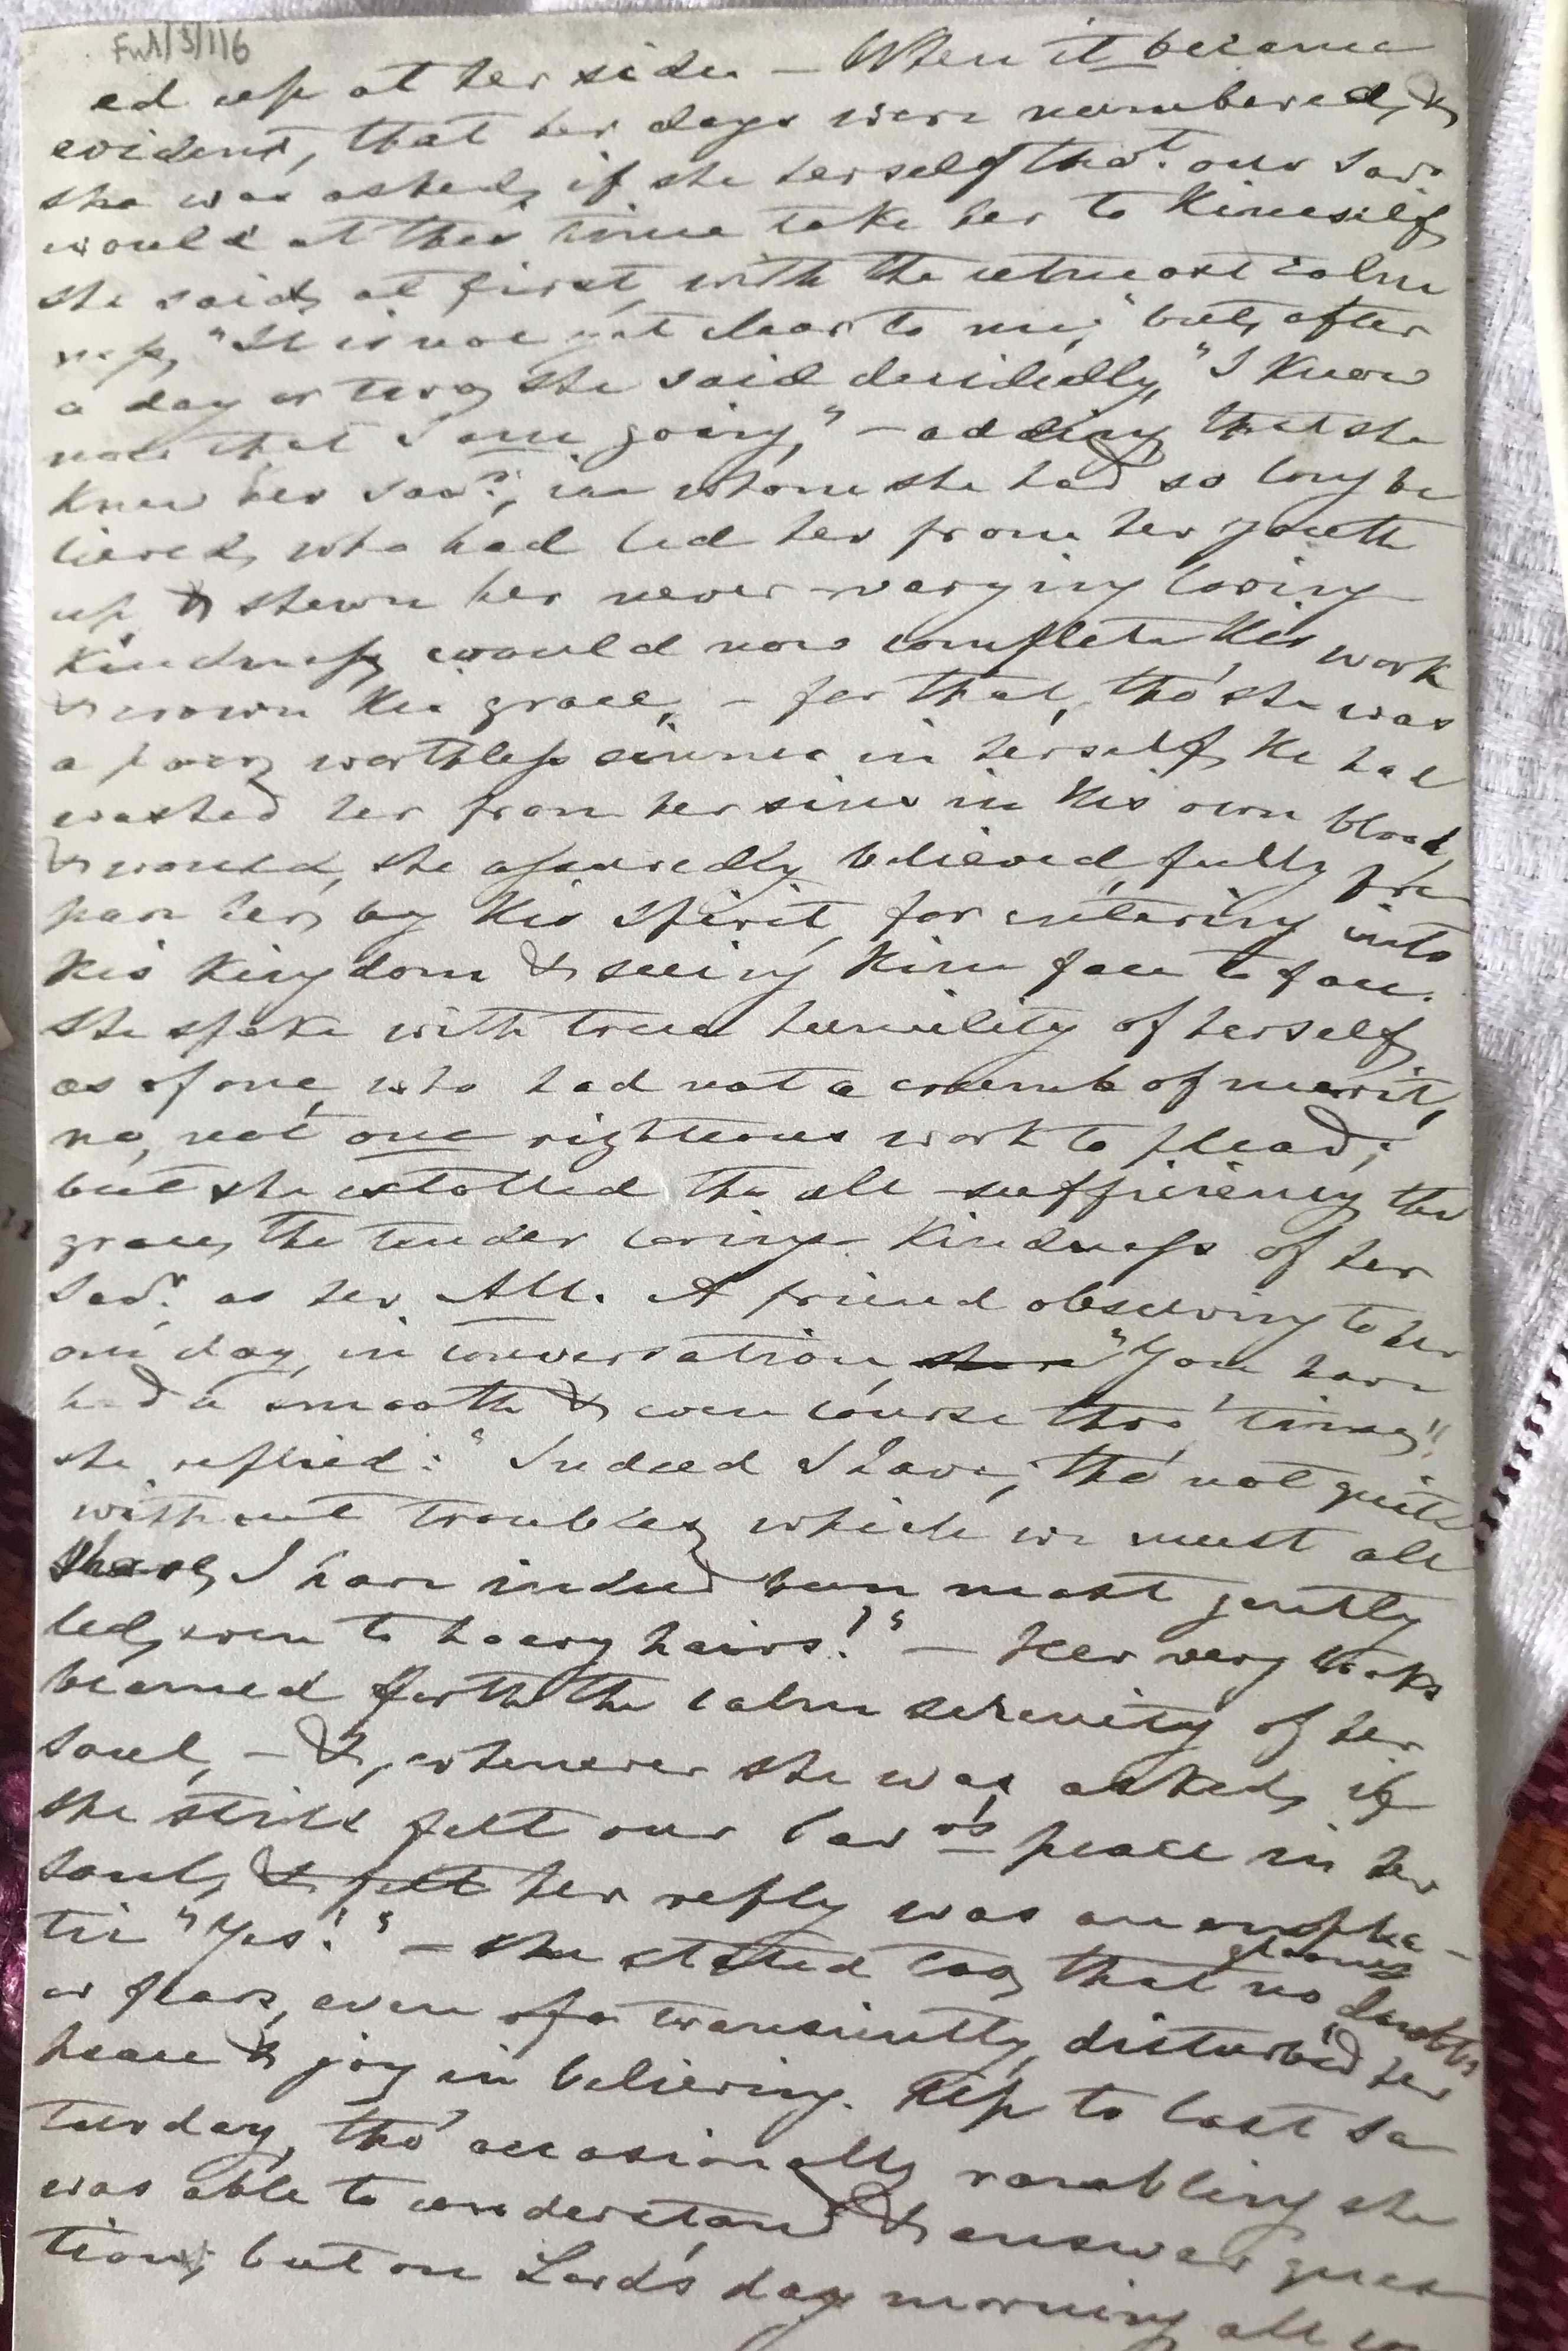 FUL/3/1/6
ed up at her side. — When it became
evident, that her days were numbered, &
she was asked, if she herself tho't. our Savr.
would at this time take her to Himself
she said, at first, with the utmost calm
neſs, "It is not yet clear to me;" but, after
a day or two, she said decidedly, "I know
now that I am going," — adding, that she
knew her Savr., in whom she had so long be
lieved, who had led her from her youth
up & shewn her never-varying loving
kindneſs, would now complete His work
& crown His grace, — for that, tho' she was
a poor, worthleſs sinner in herself, He had
washed her from her sins in His own blood,
& would, she aſsuredly believed, fully pre
pare her, by His Spirit, for entering into
His Kingdom & seeing Him face to face.
She spoke with true humility of herself,
as of one, who had not a crumb of merit,
no, not one righteous work to plead;
but she extolled the all-sufficiency, the
grace, the tender loving-kindneſs of her
Savr. as her All. A friend observing to her
one day, in conversation, "You have
had a smooth & even course thro' time,"
she replied: "Indeed I have; tho' not quite
without troubles, which we must all
share, I have indeed been most gently
led, even to hoary hairs!" — Her very looks
beamed forth the calm serenity of her
soul, — &, whenever she was asked, if
she still felt our Savr's peace in her
soul, & felt her reply was an empha-
tic "Yes!" — She stated too, that no gloomy doubts
or fears, even transiently, disturbed her
peace & joy in believing. Up to last Sa
turday, tho' occasionally rambling she
was able to understand & answer ques
tions; but on Lord's day morning all